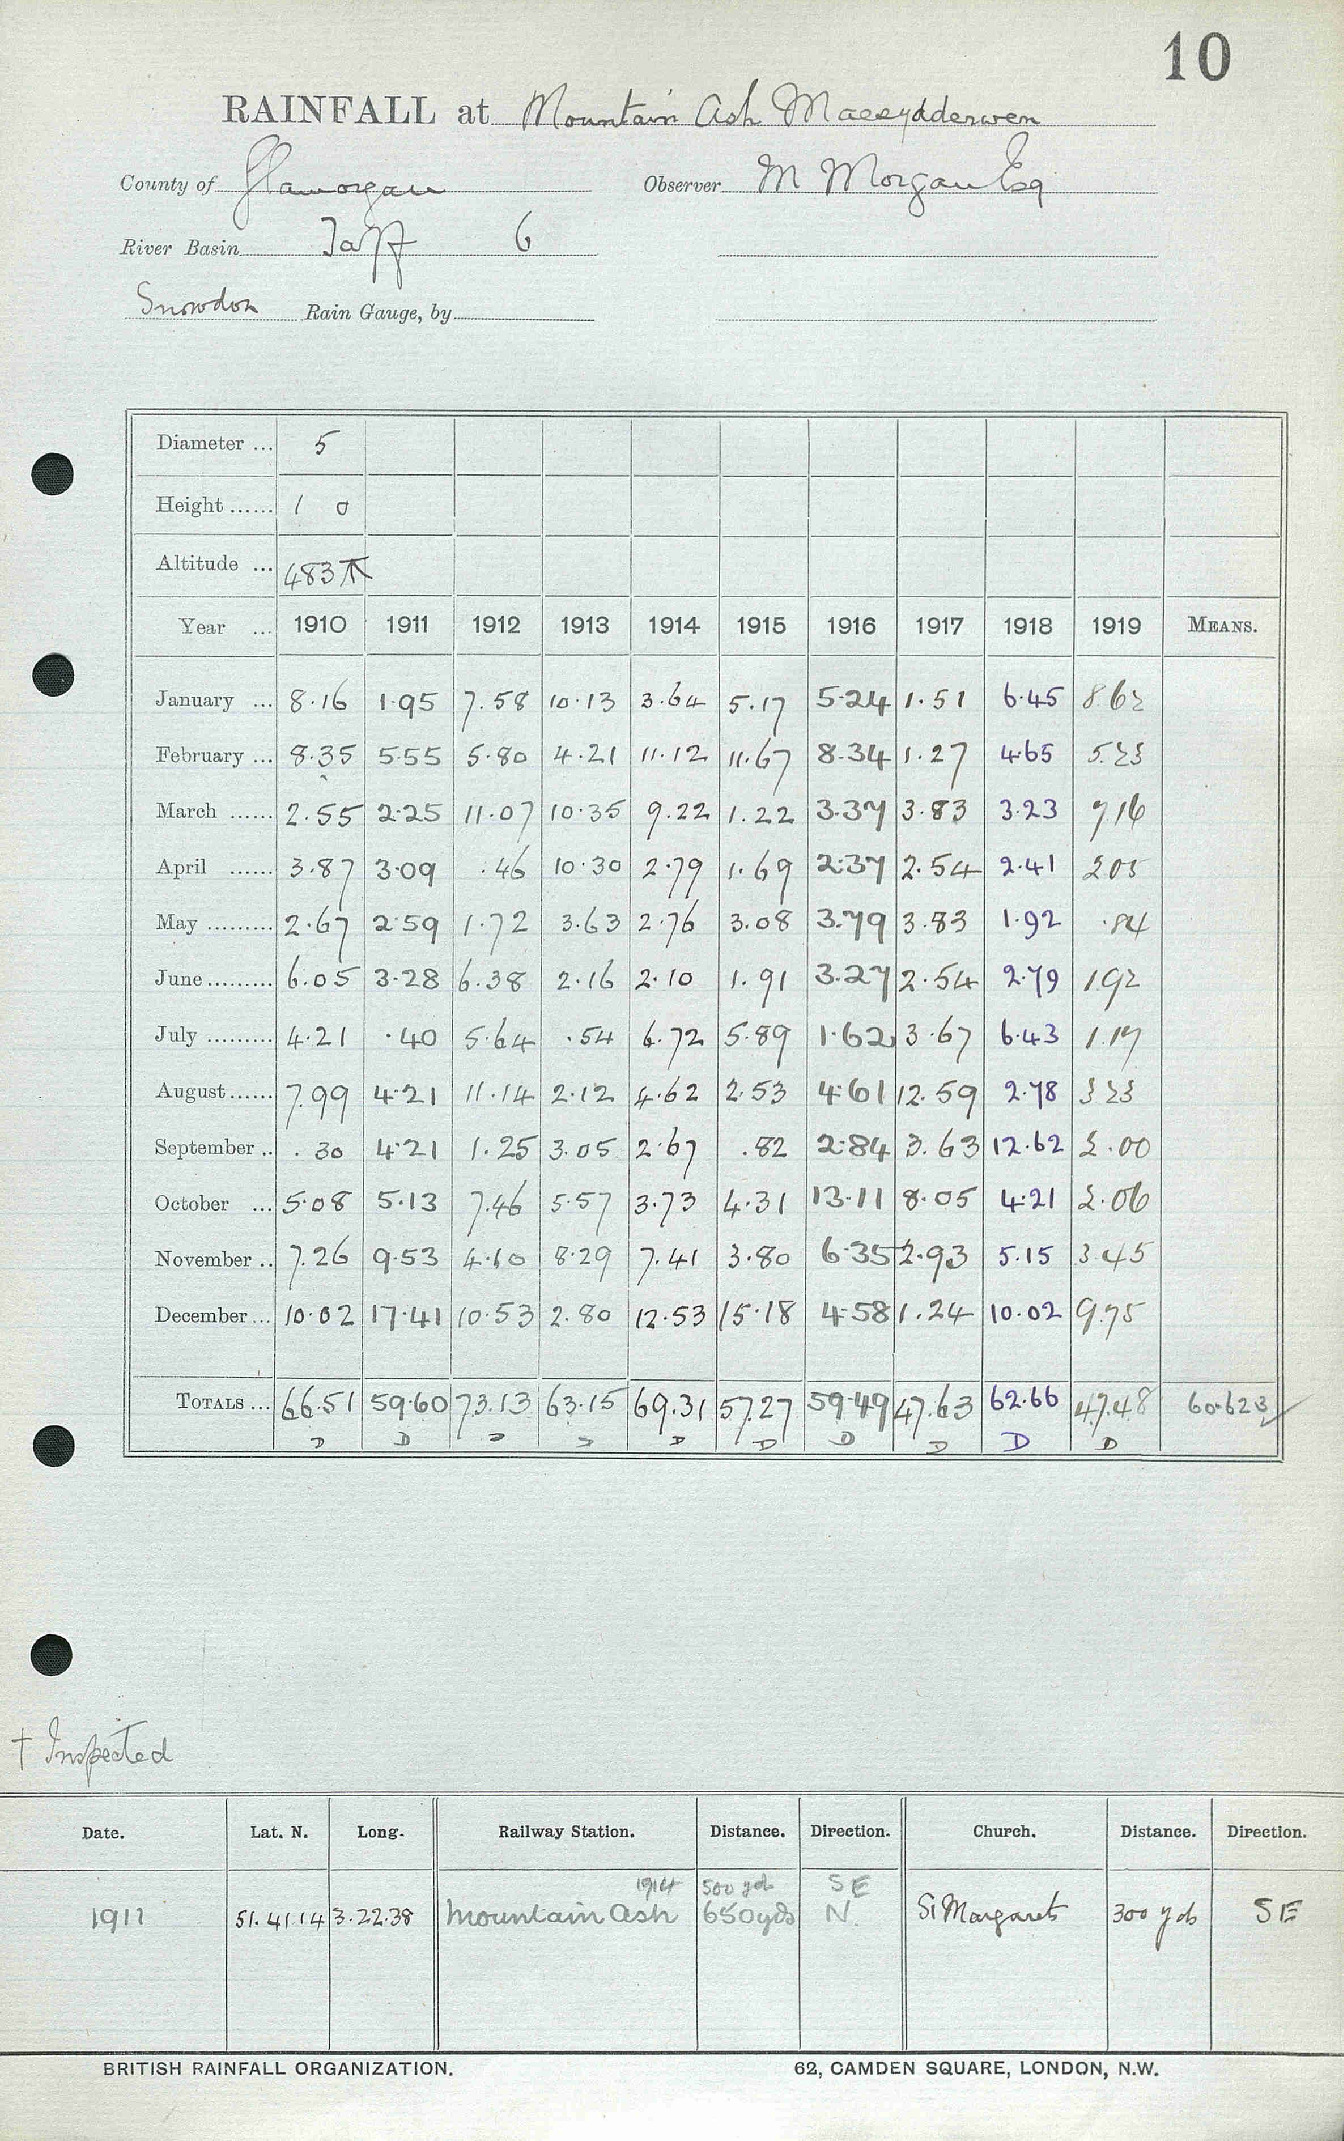 10
RAINFALL at Mountain Ash Maesydderwen
County of Glamorgan Observer M Morgan Esq
River Basin Taff 6
Snowdon Rain Gauge, by
Diameter ... 5
Height ...... 1 0
Altitude ... 483 ⊼
Year ... 1910 1911 1912 1913 1914 1915 1916 1917 1918 1919 MEANS.
January ... 8.16 1.95 7.58 10.13 3.64 5.17 5.24 1.51 6.45 8.62
February ... 8.35 5.55 5.80 4.21 11.12 11.67 8.34 1.27 4.65 5.23
March ...... 2.55 2.25 11.07 10.35 9.22 1.22 3.37 3.83 3.23 7 16
April ...... 3.87 3.09 .46 10.30 2.79 1.69 2.37 2.54 2.41 2 05
May ......... 2.67 2.59 1.72 3.63 2.76 3.08 3.79 3.83 1.92 .84
June ......... 6.05 3.28 6.38 2.16 2.10 1.91 3.27 2.54 2.79 1.92
July ......... 4.21 .40 5.64 .54 6.72 5.89 1.62 3.67 6.43 1.17
August ...... 7.99 4.21 11.14 2.12 4.62 2.53 4.61 12.59 2.78 3 23
September .. .30 4.21 1.25 3.05 2.67 .82 2.84 3.63 12.62 2.00
October ... 5.08 5.13 7.46 5.57 3.73 4.31 13.11 8.05 4.21 2.06
November .. 7.26 9.53 4.10 8.29 7.41 3.80 6.35 2.93 5.15 3.45
December ... 10.02 17.41 10.53 2.80 12.53 15.18 4.58 1.24 10.02 9.75
TOTALS ... 66.51 59.60 73.13 63.15 69.31 57.27 59.49 47.63 62.66 47.48 60.623
D D D D D D D D D D
† Inspected
Date. Lat. N. Long. Railway Station. Distance. Direction. Church. Distance. Direction.
1914 500 yds SE
1911 51.41.14 3.22.38 Mountain Ash 650 yds N. St Margarets 300 yds SE
BRITISH RAINFALL ORGANIZATION. 62, CAMDEN SQUARE, LONDON, N.W.